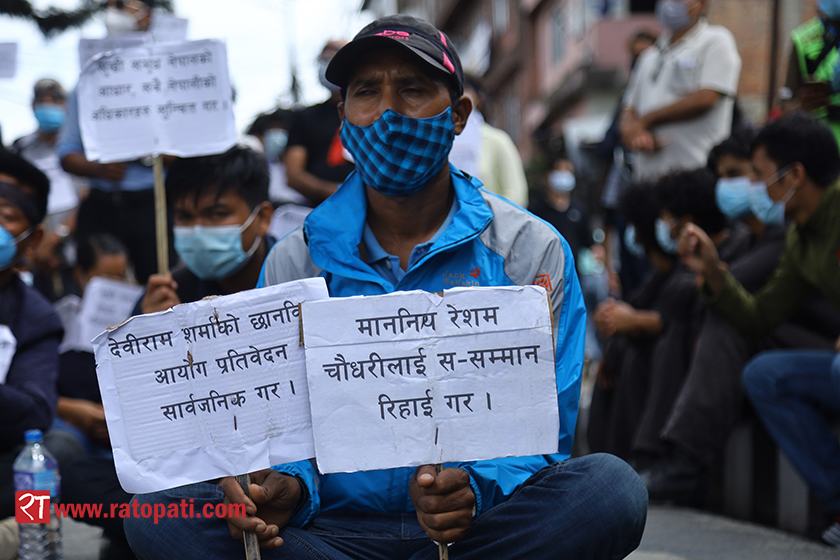 सुखी समृद्ध नेपालको
आधार, सबै नेपालीको
अधिकारहरु सुनिश्चित गर ।
देवीराम शर्माको छानवि
आयौग प्रतिवेदन
सार्वजनिक गर ।
माननिय रेशम
चौधरीलाई स-सम्मान
रिहाई गर ।
रा www.ratopati.com